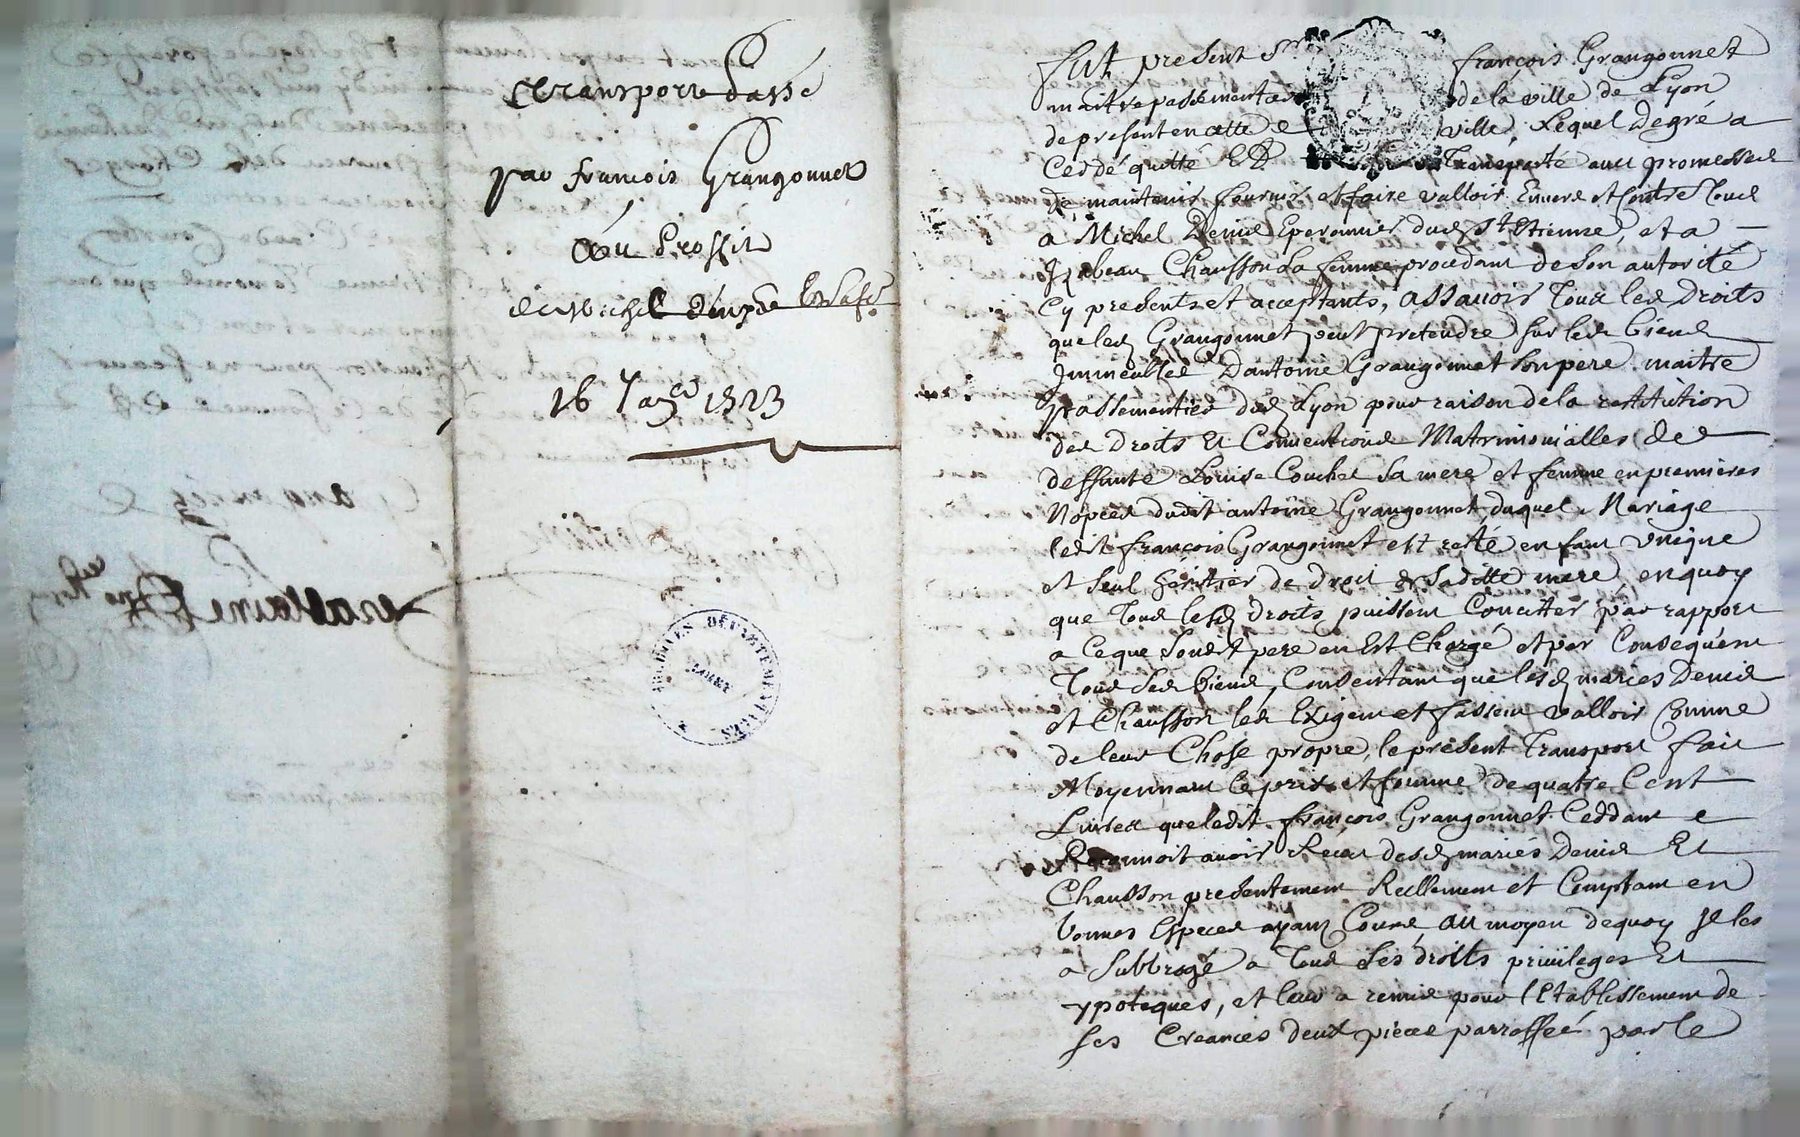 Transport Passé
par françois Grangonnet
Au Proffit
de Michel Denis Et Sa fe
16 1723
ARCHIVES DÉPARTEMENTALES
LOIRET
fut present Sr françois Grangonnet
maitre passementier de la ville de Lyon
de present en cette ville, Lequel de gré a
Ceddé quitté Et Transporté avec promesses
de maintenir fournir et faire valloir Envers et Contre Tous
a Michel Denis Eperonnier dud St Etienne, et a
Izabeau Chausson sa femme procedant de son autorité
Cy presents et acceptants, assavoir Tous les Droits
que led Grangonnet peut pretendre sur les biens
Immeubles Dantoine Grangonnet son pere maitre
Passementier dud Lyon pour raison de la restitution
des Droits Et Conventions Matrimonialles de
deffunte Louise Couchet sa mere et femme en premieres
Nopces dudit antoine Grangonnet, duquel Mariage
ledit françois Grangonnet est resté enfant Vnique
et seul heritier de droit de saditte mere, en quoy
que Tous lesd droits puissent Concister par rapport
a Ce que soudt pere en Est Chargé et par Consequent
Tous ses biens, Consentant que lesd mariés Denis
et Chausson les Exigent et fassent valloir Comme
de leur Chose propre, le present Transport fait
Moyennant le prix et somme de quatre Cent
Livres que ledit françois Grangonnet Ceddant
Reconnoit avoir Receu desd mariés Denis Et
Chausson presentement Reellement et Comptant en
bonnes Especes ayant Cours, au moyen de quoy Il les
a subbrogé a Tous ses droits privileges Et
ypoteques, et leur a remis pour l'Etablissement de
ses Creances deux pieces parraffée par le